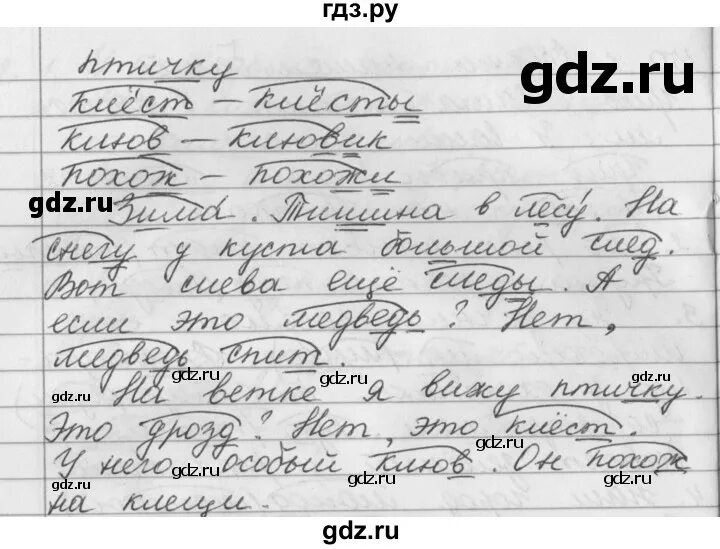 гдз.ру
gdz.ru
птичку
клёст — клёсты
клюв — клювик
похож — похожи
gdz.ru
Зима. Тишина в лесу́. На
снегу у куста большой след.
Вот слева ещё следы. А
если это медведь? Нет,
gdz.ru
gdz.ru
медведь спит.
gdz.ru
gdz.ru
На ветке я вижу птичку.
gdz.ru
gdz.ru
Это дрозд? Нет, это клёст.
gdz.ru
gdz.ru
У него особый клюв. Он похож
gdz.ru
gdz.ru
на клещи.
gdz.ru
gdz.ru